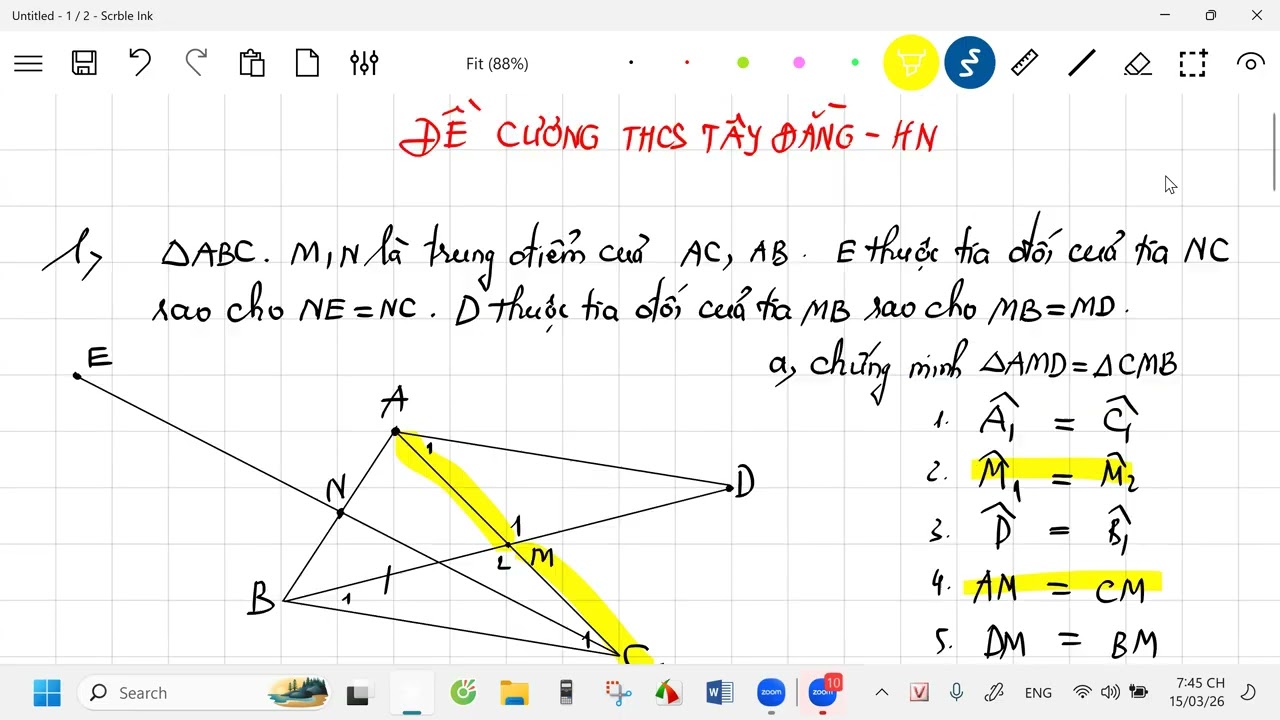 Untitled - 1 / 2 - Scrble Ink
Fit (88%)
ĐỀ CƯƠNG THCS TÂY ĐẰNG - HN
1, ΔABC. M, N là trung điểm của AC, AB. E thuộc tia đối của tia NC
sao cho NE = NC. D thuộc tia đối của tia MB sao cho MB = MD.
a, chứng minh ΔAMD = ΔCMB
1. Â₁ = Ĉ₁
2. M̂₁ = M̂₂
3. D̂ = B̂₁
4. AM = CM
5. DM = BM
E
A
1
N
D
1
2 M
B 1
1 C
Search
10
ENG
7:45 CH
15/03/26